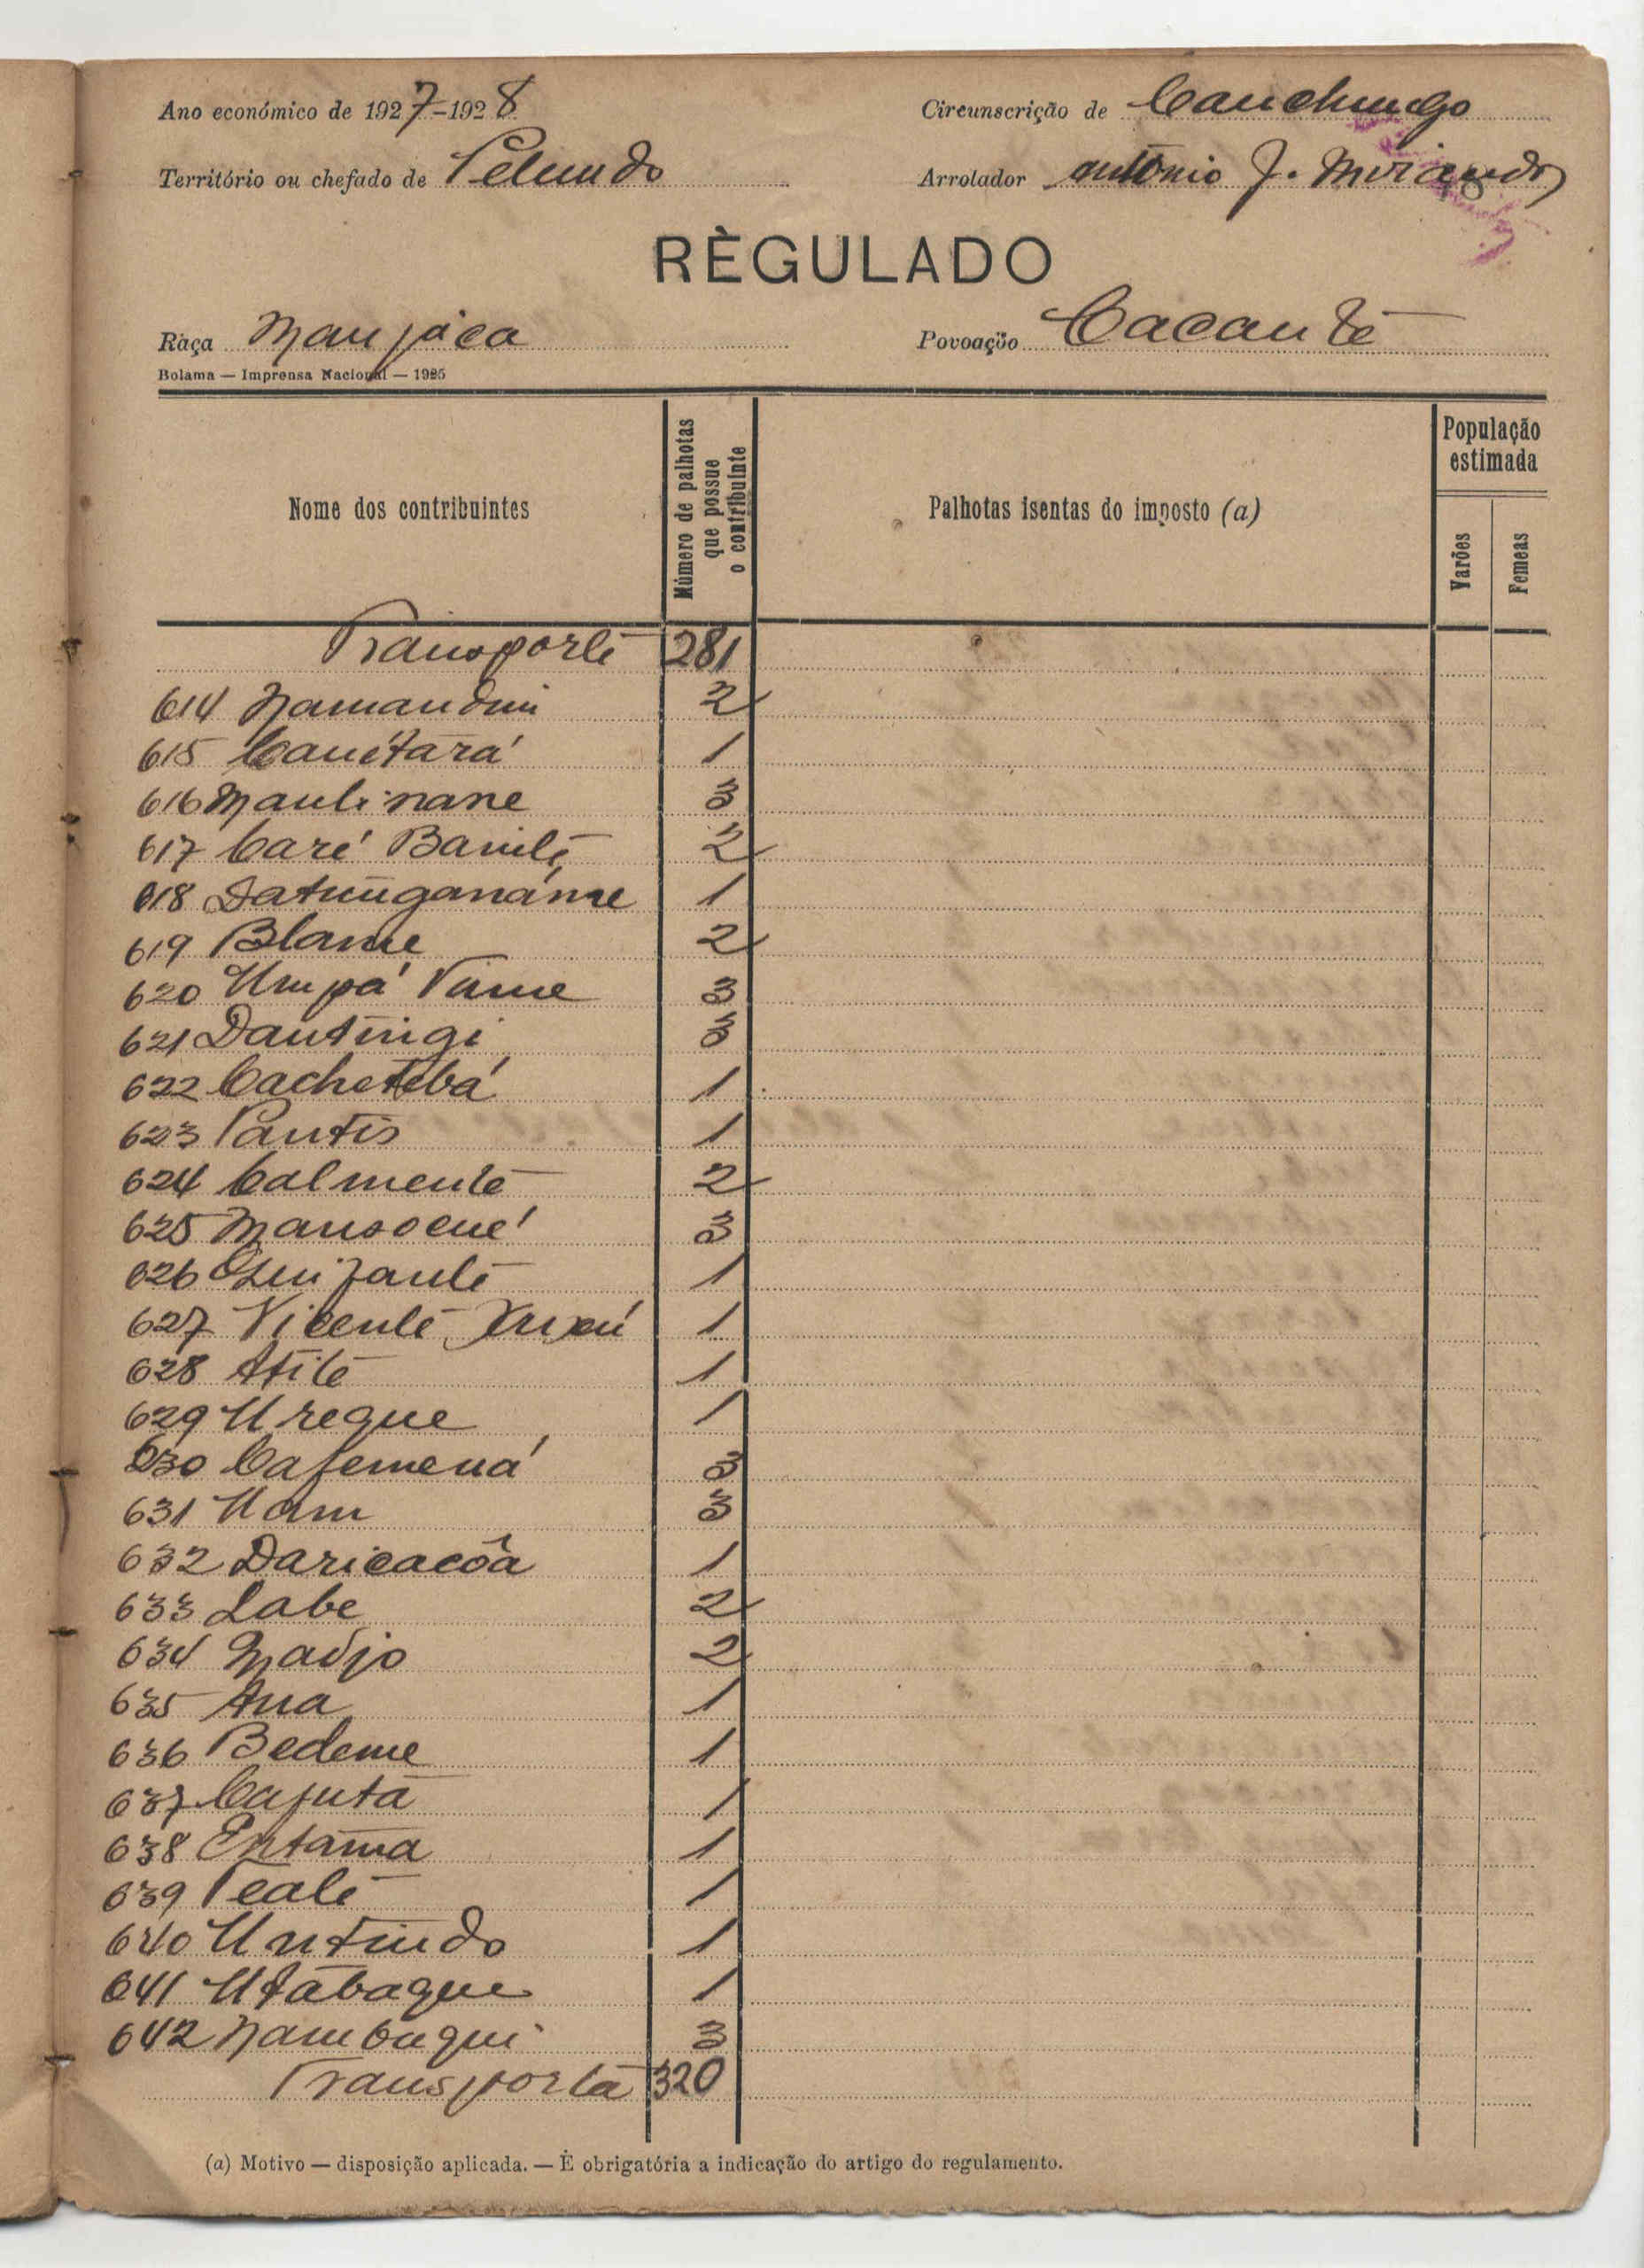 Ano económico de 1927-1928 Circunscrição de Canchungo
Território ou chefado de Pelundo Arrolador António J. Miranda
RÈGULADO
Raça Manjaca Povoação Cacanté
Bolama — Imprensa Nacional — 1925
Nome dos contribuintes
Número de palhotas que possue o contribuinte
Palhotas isentas do imposto (a)
População estimada
Varões
Femeas
Transporte 281
614 Namandim 2
615 Canétará 1
616 Maulinane 3
617 Caré Banilé 2
618 Datunganáme 1
619 Blame 2
620 Umpá Name 3
621 Dautingi 3
622 Cachetebá 1
623 Pantis 1
624 Calmenté 2
625 Mansoené 3
626 Quifaulé 1
627 Vicente Xuxú 1
628 Atite 1
629 Ureque 1
630 Cafemená 3
631 Uam 3
632 Daricacôa 1
633 Labe 2
634 Nadjo 2
635 Ana 1
636 Bedeme 1
637 Cajuta 1
638 Entama 1
639 Teale 1
640 Untindo 1
641 Utabaque 1
642 Nambuqui 3
Transporta 320
(a) Motivo — disposição aplicada. — É obrigatória a indicação do artigo do regulamento.